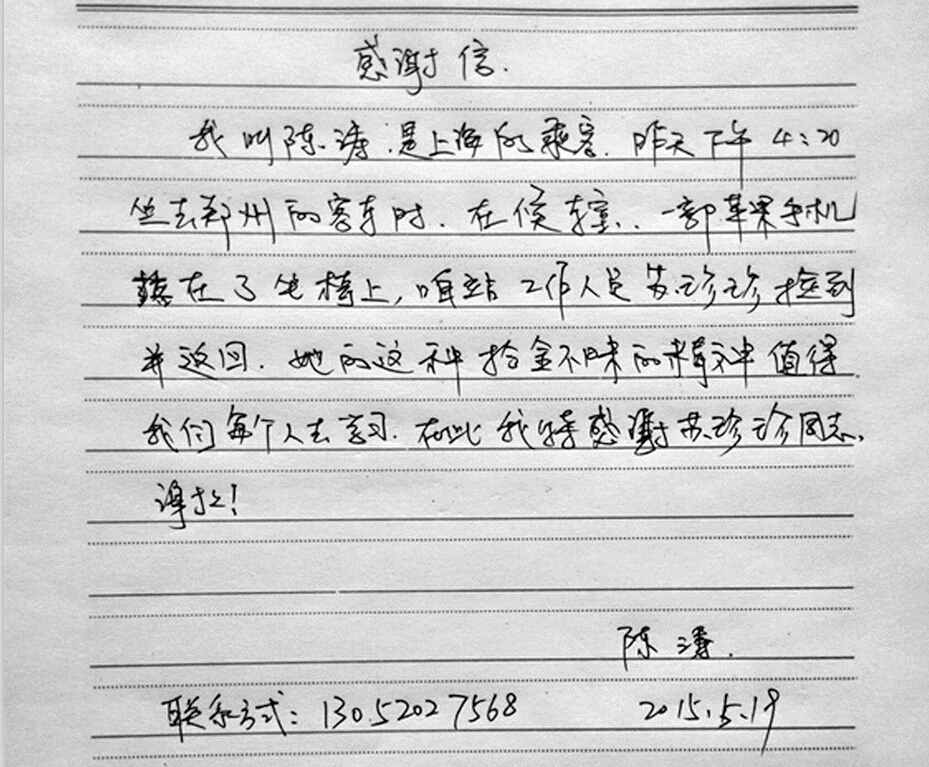 感谢信.
我叫陈涛.是上海的乘客.昨天下午4:20
坐去郑州的客车时.在候车室..一部苹果手机
落在了坐椅上,咱站工作人员苏珍珍捡到
并返回.她的这种拾金不昧的精神值得
我们每个人去学习.在此我特感谢苏珍珍同志,
谢谢!
陈涛.
联系方式:13052027568
2015.5.19